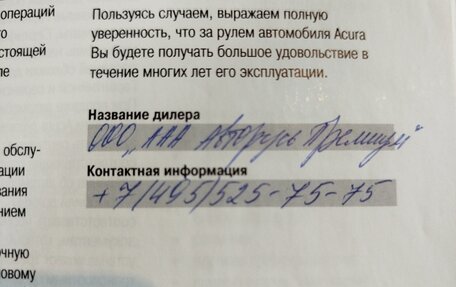 операций
го
стоящей
ле
обслу-
ации
вания
нием
очную
новому
Пользуясь случаем, выражаем полную
уверенность, что за рулем автомобиля Acura
Вы будете получать большое удовольствие в
течение многих лет его эксплуатации.
Название дилера
ООО „ААА Авторусь Премиум"
Контактная информация
+7/495/525-75-75